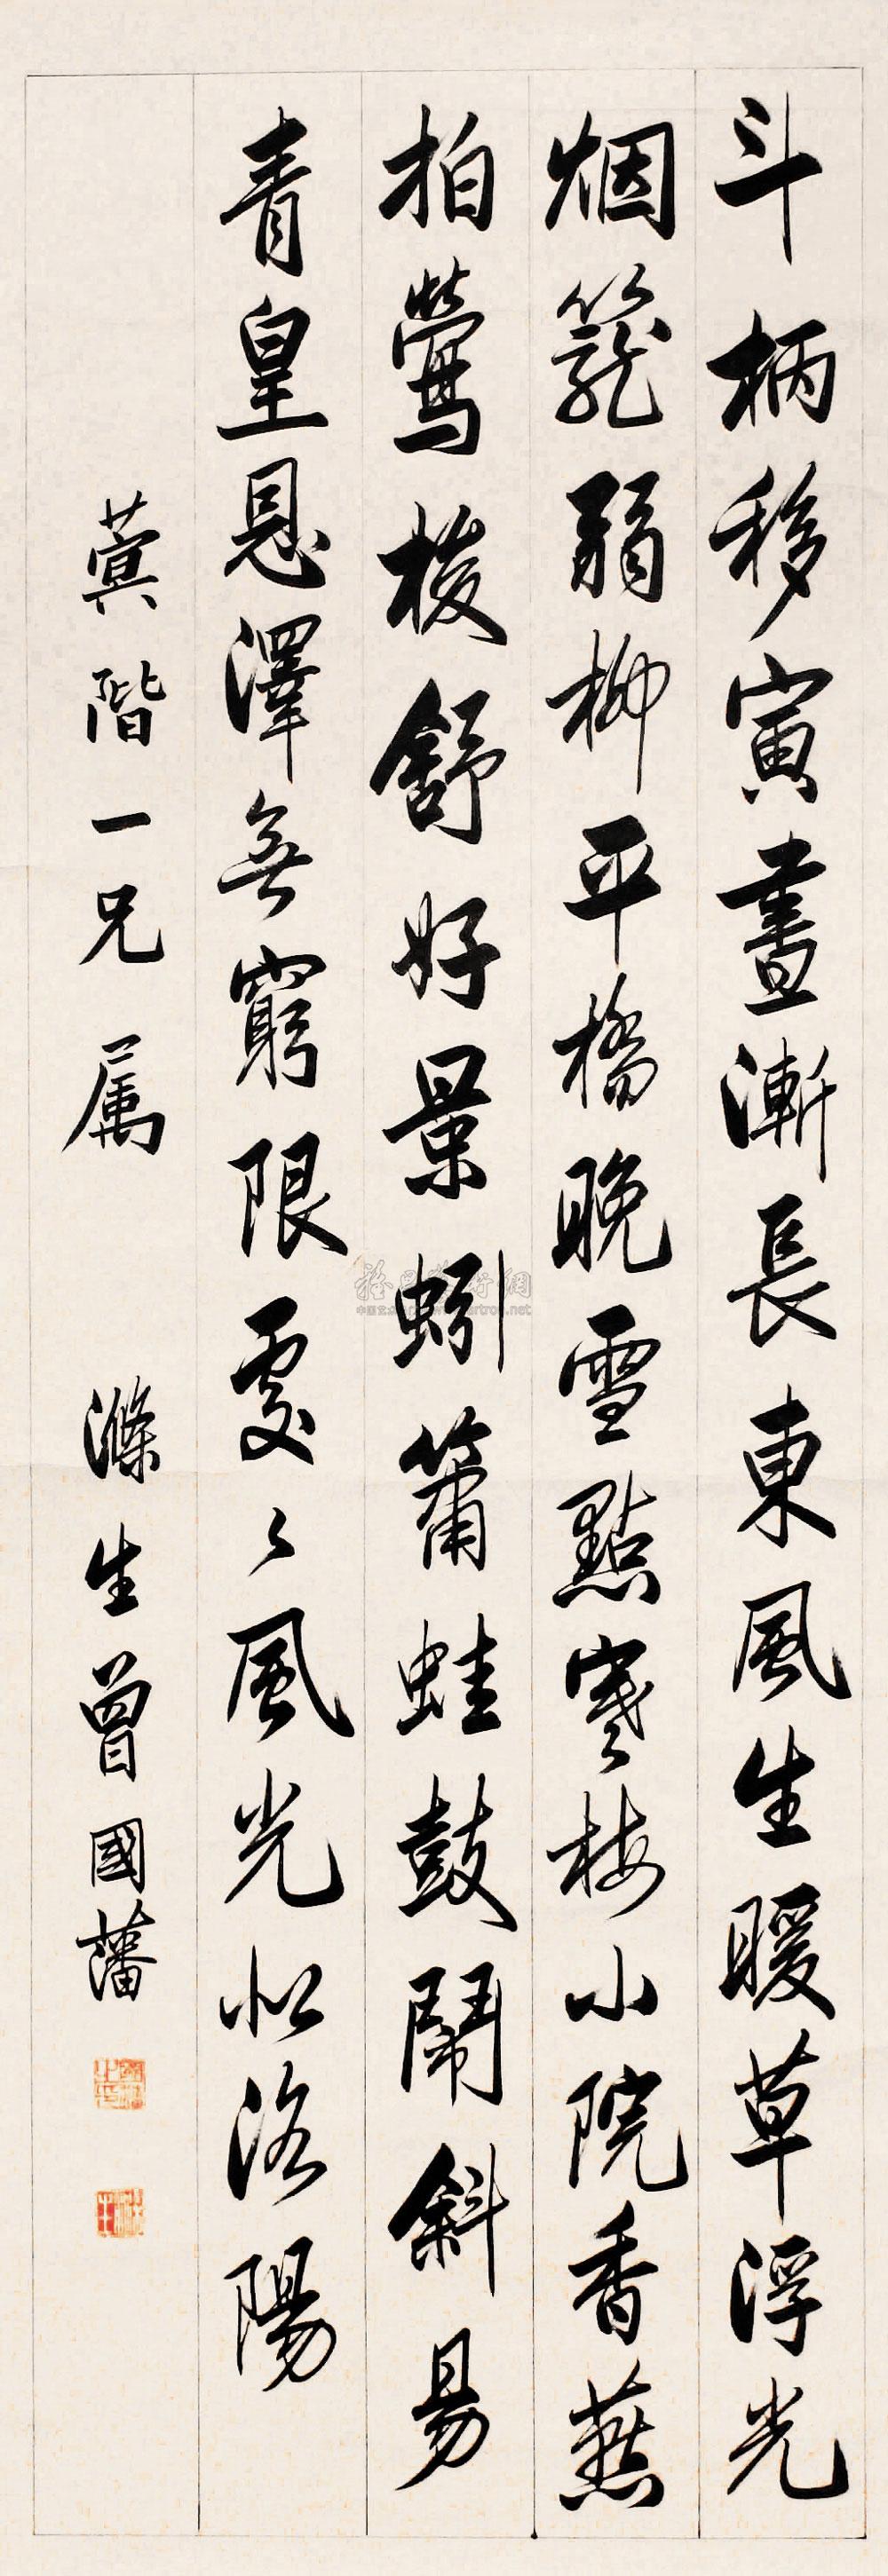 斗柄移寅晝漸長東風生暖草浮光
烟籠弱柳平橋晚雪點寒梅小院香燕
拍鶯梭舒好景蚓簫蛙鼓鬧斜昜
青皇恩澤無窮限處〻風光似洛陽
蓂階一兄属 滌生曾國藩